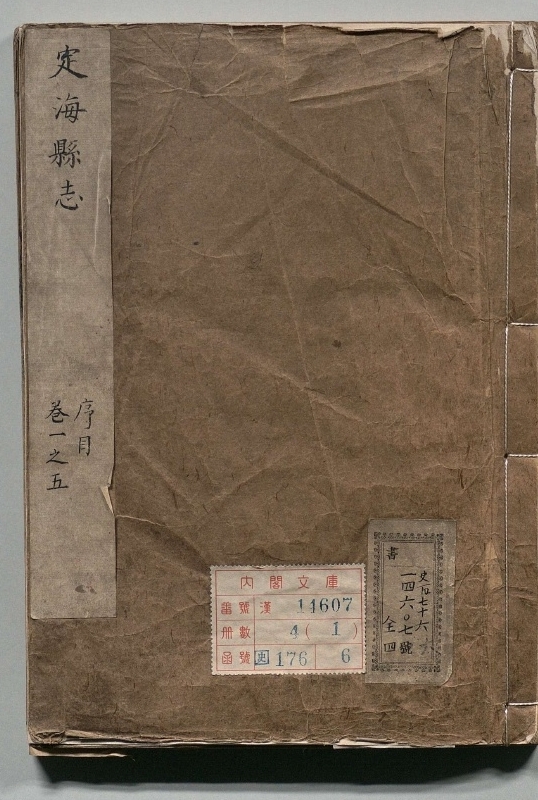 定海縣志
序目
卷一之五
內閣文庫
番號 漢 11607
冊數 4 (1)
函號 史 176 6
書
一四六〇七號
全四